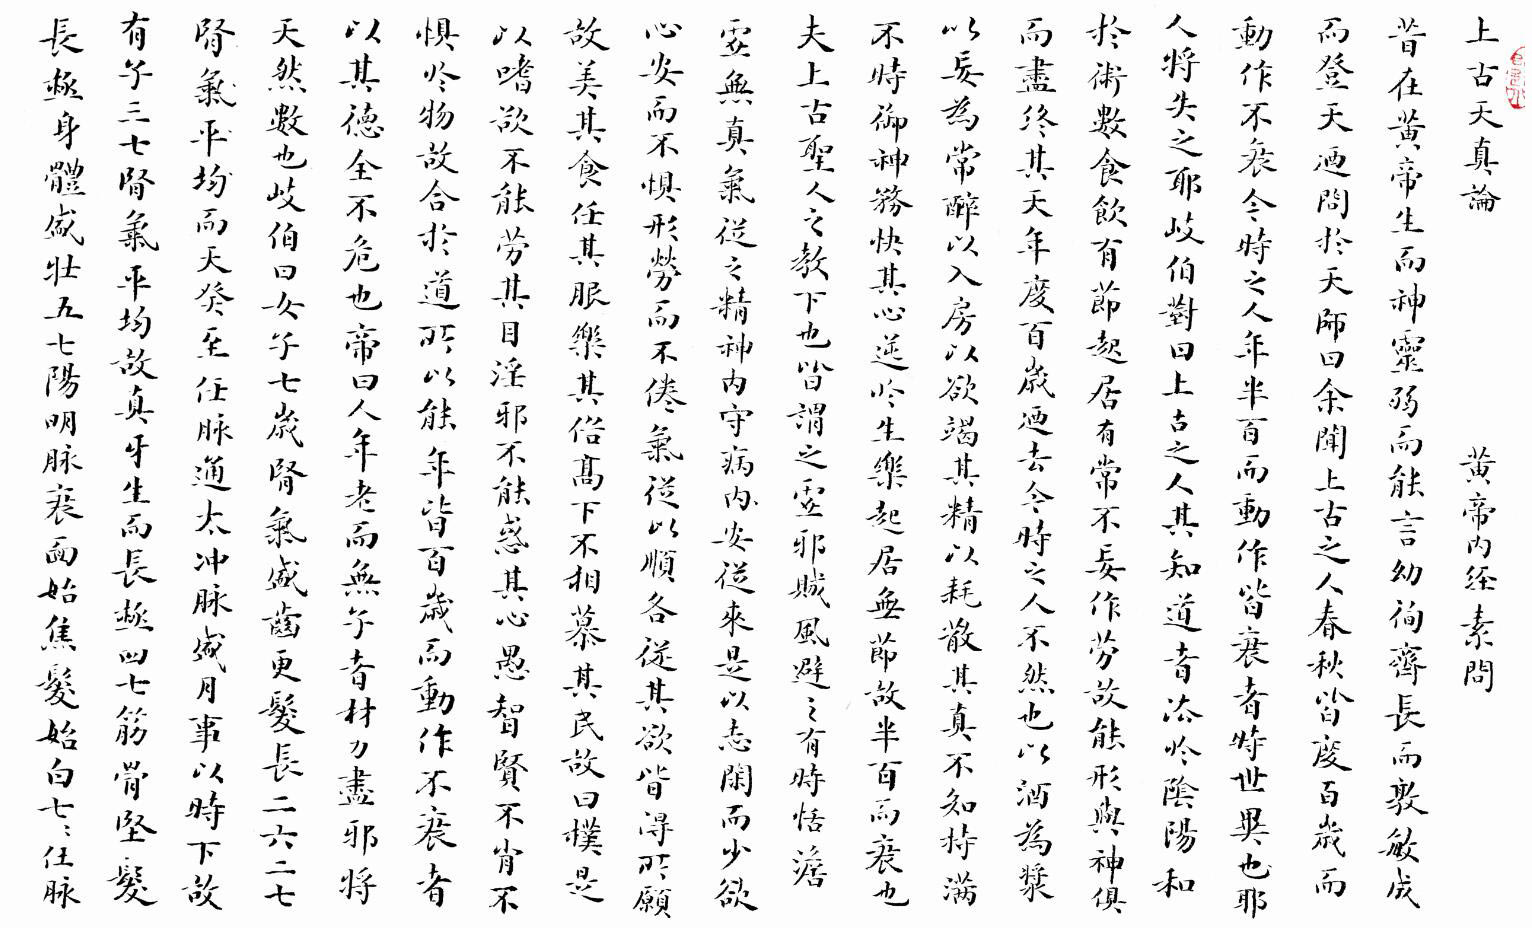 上古天真論　黃帝內經素問
昔在黃帝生而神靈弱而能言幼徇齊長而敦敏成
而登天迺問於天師曰余聞上古之人春秋皆度百歲而
動作不衰今時之人年半百而動作皆衰者時世異也耶
人將失之耶岐伯對曰上古之人其知道者法於陰陽和
於術數食飲有節起居有常不妄作勞故能形與神俱
而盡終其天年度百歲迺去今時之人不然也以酒為漿
以妄為常醉以入房以欲竭其精以耗散其真不知持滿
不時御神務快其心逆於生樂起居無節故半百而衰也
夫上古聖人之教下也皆謂之虛邪賊風避之有時恬澹
虛無真氣從之精神內守病內安從來是以志閑而少欲
心安而不懼形勞而不倦氣從以順各從其欲皆得所願
故美其食任其服樂其俗高下不相慕其民故曰樸是
以嗜欲不能勞其目淫邪不能惑其心愚智賢不肖不
懼於物故合於道所以能年皆百歲而動作不衰者
以其德全不危也帝曰人年老而無子者材力盡邪將
天然數也岐伯曰女子七歲腎氣盛齒更髮長二六二七
腎氣平均而天癸至任脉通太冲脉盛月事以時下故
有子三七腎氣平均故真牙生而長極四七筋骨堅髮
長極身體盛壯五七陽明脉衰面始焦髮始白七〻任脉